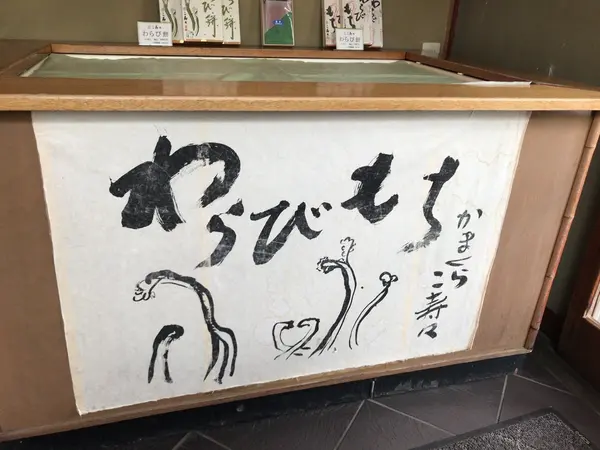 わらび餅
わらび餅
わらびもち
かまくら
こ寿々